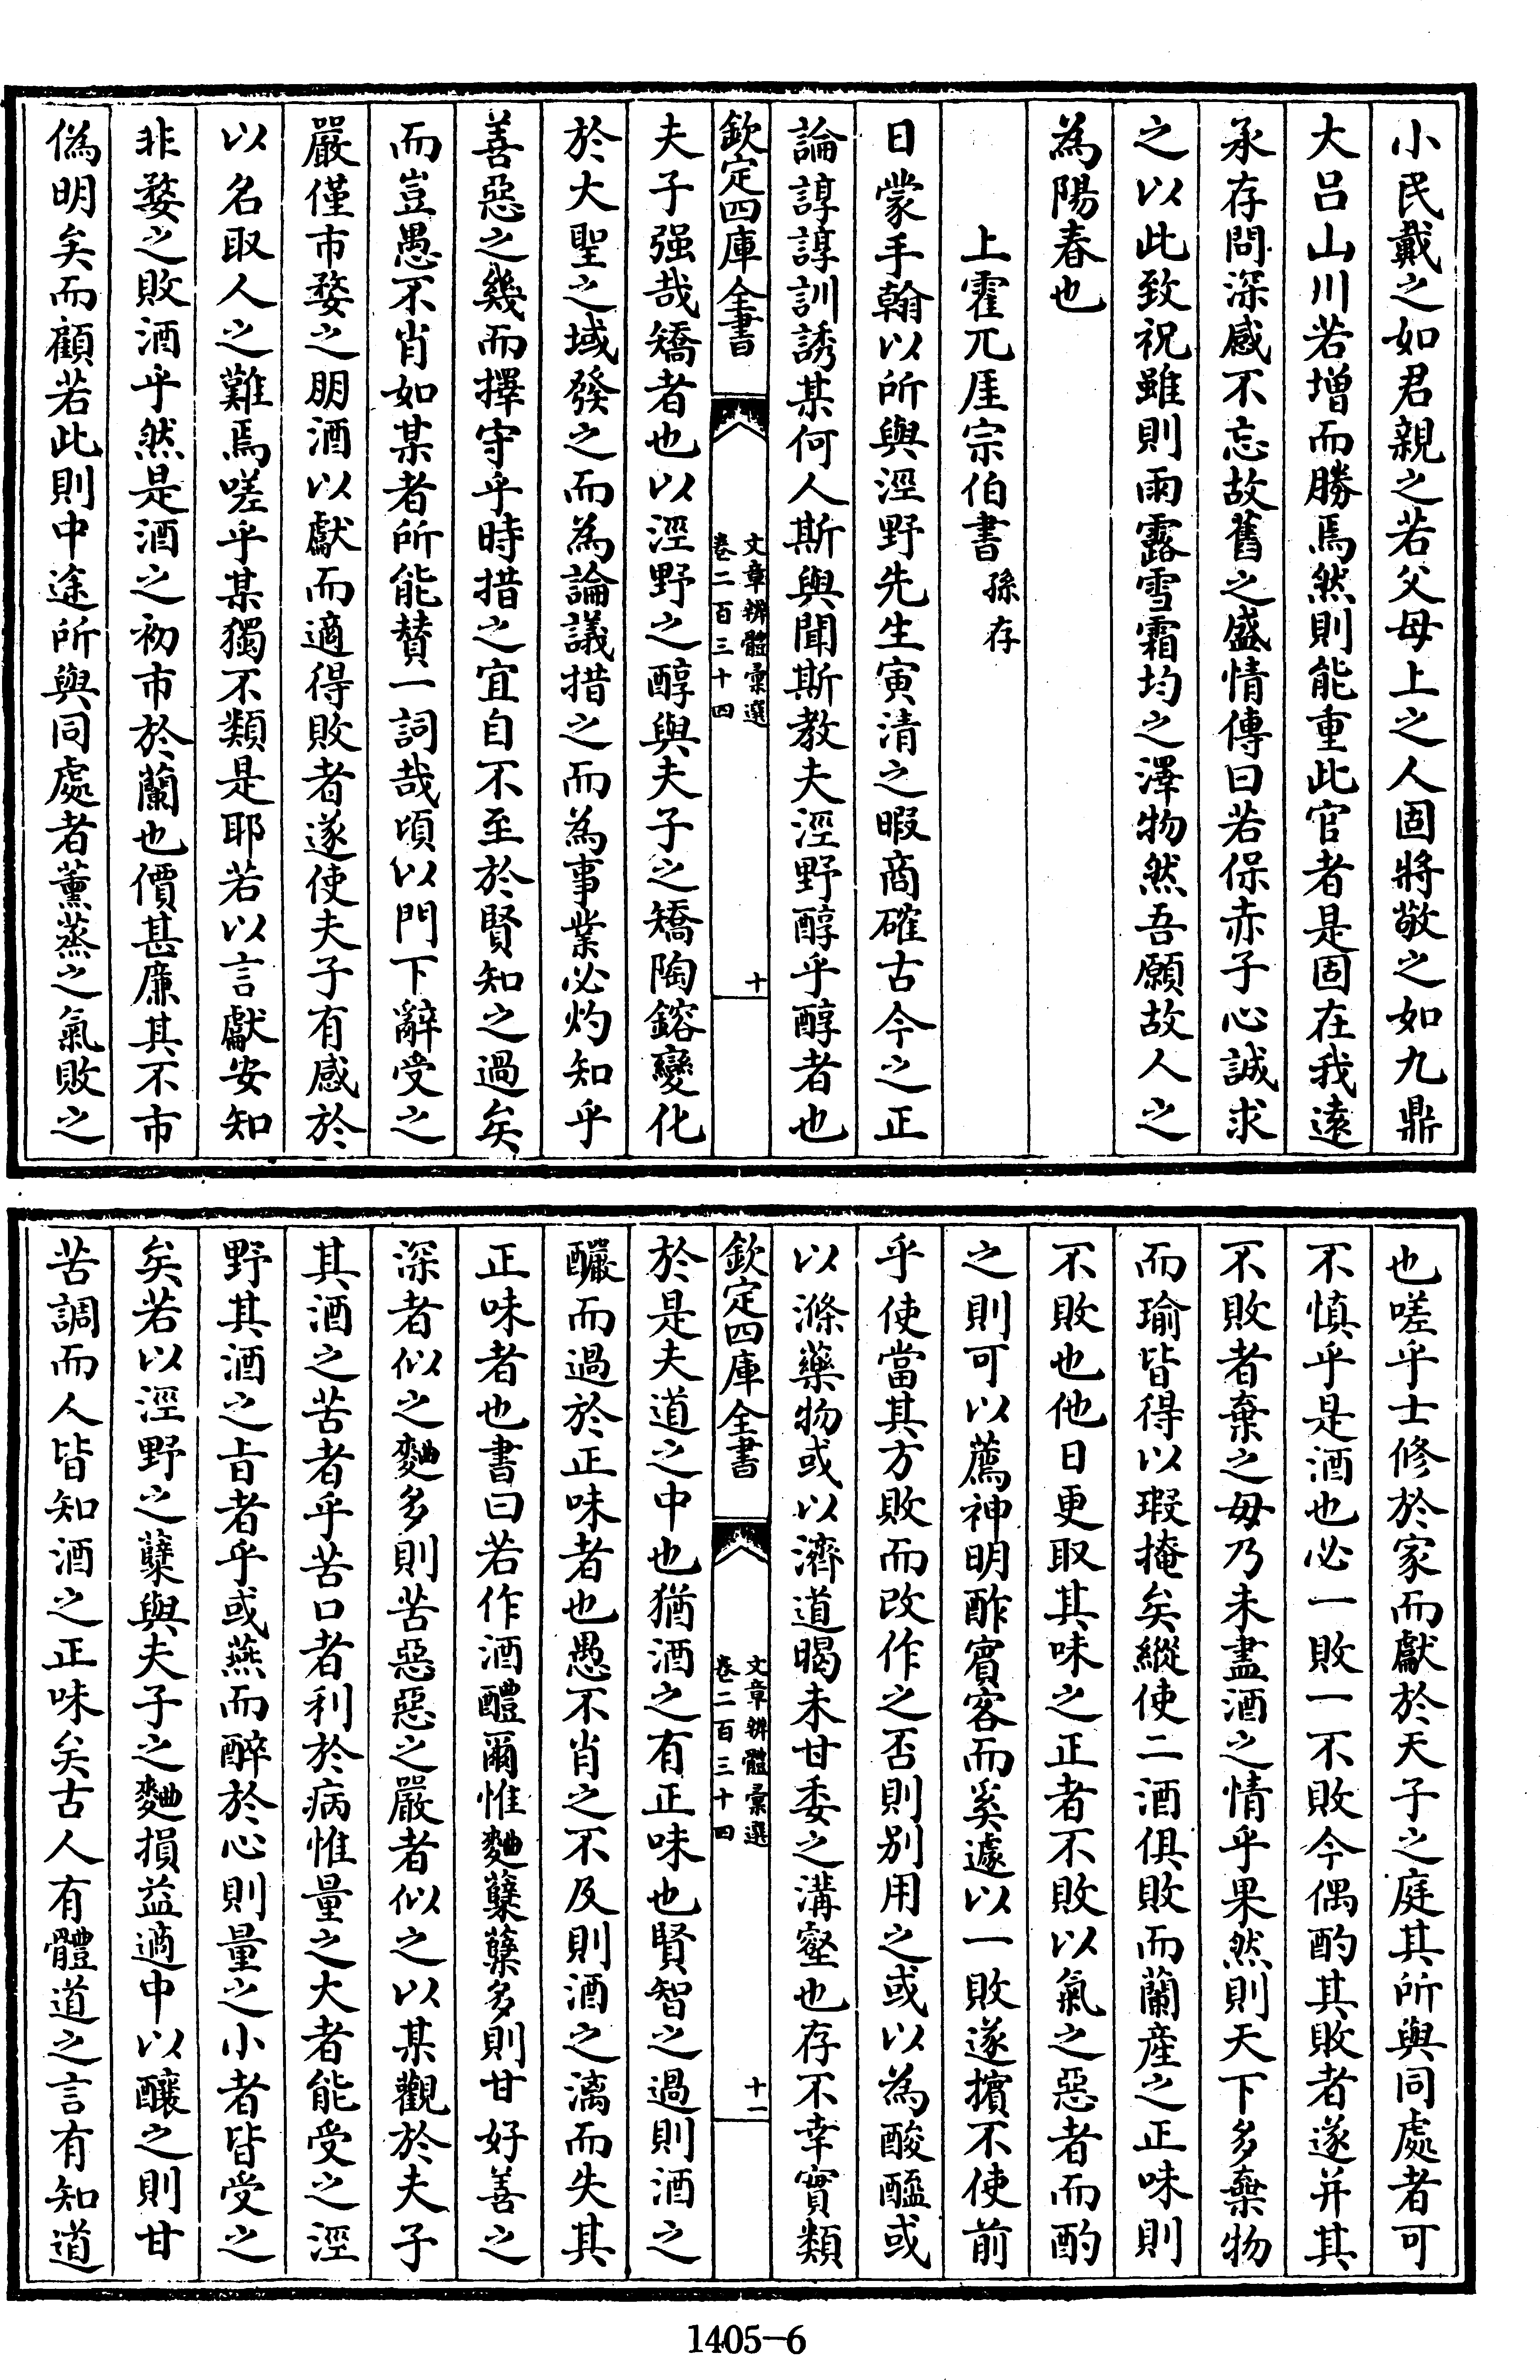 小民戴之如君親之若父母上之人固將敬之如九鼎
大呂山川若增而勝焉然則能重此官者是固在我逺
承存問深感不忘故舊之盛情傳曰若保赤子心誠求
之以此致祝雖則雨露雪霜均之澤物然吾願故人之
為陽春也
上霍兀厓宗伯書 孫存
日蒙手翰以所與涇野先生寅清之暇商確古今之正
論諄諄訓誘某何人斯與聞斯教夫涇野醇乎醇者也
欽定四庫全書
文章辨體彙選
卷二百三十四
十
夫子强哉矯者也以涇野之醇與夫子之矯陶鎔變化
於大聖之域發之而為論議措之而為事業必灼知乎
善惡之幾而擇守乎時措之宜自不至於賢知之過矣
而豈愚不肖如某者所能賛一詞哉頃以門下辭受之
嚴僅市婺之朋酒以獻而適得敗者遂使夫子有感於
以名取人之難焉嗟乎某獨不類是耶若以言獻安知
非婺之敗酒乎然是酒之初市於蘭也價甚廉其不市
偽明矣而顧若此則中途所與同處者薰蒸之氣敗之
也嗟乎士修於家而獻於天子之庭其所與同處者可
不慎乎是酒也必一敗一不敗今偶酌其敗者遂并其
不敗者棄之毋乃未盡酒之情乎果然則天下多棄物
而瑜皆得以瑕掩矣縱使二酒俱敗而蘭産之正味則
不敗也他日更取其味之正者不敗以氣之惡者而酌
之則可以薦神明酢賓客而奚遽以一敗遂擯不使前
乎使當其方敗而改作之否則别用之或以為酸醯或
以滌藥物或以濟道暍未甘委之溝壑也存不幸實類
欽定四庫全書
文章辨體彙選
卷二百三十四
十一
於是夫道之中也猶酒之有正味也賢智之過則酒之
釅而過於正味者也愚不肖之不及則酒之漓而失其
正味者也書曰若作酒醴爾惟麴糵糵多則甘好善之
深者似之麴多則苦惡惡之嚴者似之以某觀於夫子
其酒之苦者乎苦口者利於病惟量之大者能受之涇
野其酒之㫖者乎或燕而醉於心則量之小者皆受之
矣若以涇野之糵與夫子之麴損益適中以釀之則甘
苦調而人皆知酒之正味矣古人有體道之言有知道
1405-6